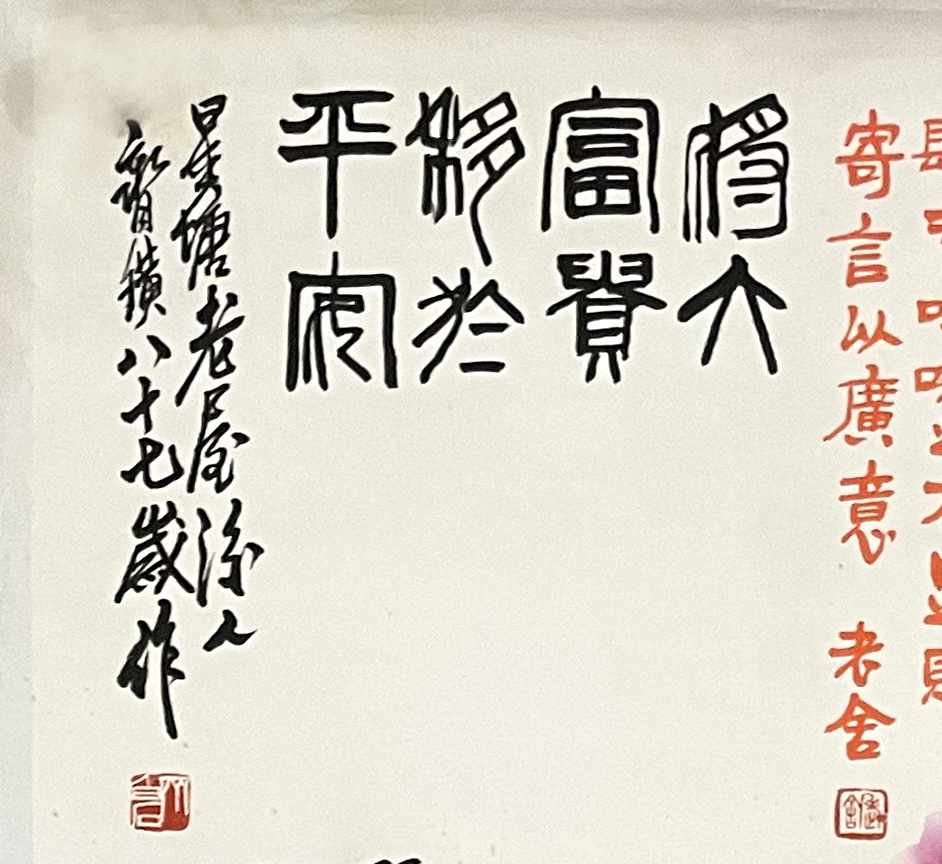 寄言以廣意 老舍
將大
富貴
移於
平安
星塘老屋後人
齊璜八十七歲作